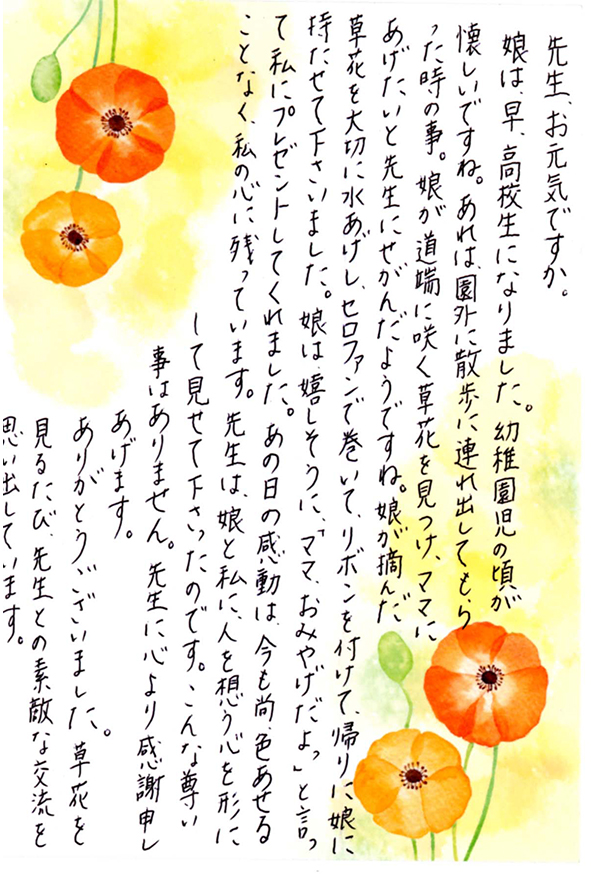 先生、お元気ですか。
娘は、早、高校生になりました。幼稚園児の頃が
懐しいですね。あれは、園外に散歩に連れ出してもら
った時の事。娘が道端に咲く草花を見つけ、ママに
あげたいと先生にせがんだようですね。娘が摘んだ
草花を大切に水あげし、セロファンで巻いて、リボンを付けて、帰りに娘に
持たせて下さいました。娘は、嬉しそうに、「ママ、おみやげだよっ」と言っ
て私にプレゼントしてくれました。あの日の感動は、今も尚、色あせる
ことなく、私の心に残っています。先生は、娘と私に、人を想う心を形に
して見せて下さったのです。こんな尊い
事はありません。先生に心より感謝申し
あげます。
ありがとうございました。草花を
見るたび、先生との素敵な交流を
思い出しています。